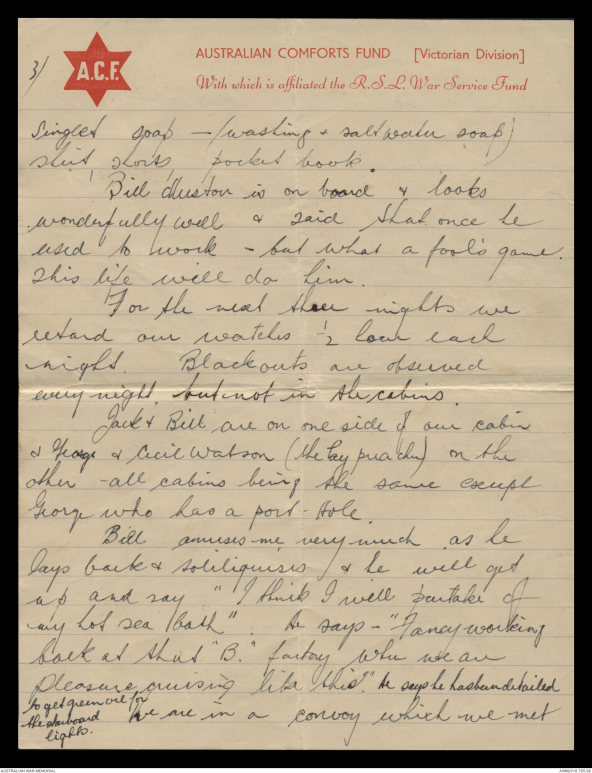 3/
A.C.F.
AUSTRALIAN COMFORTS FUND [Victorian Division]
With which is affiliated the R.S.L. War Service Fund
Singlet soap - (washing & saltwater soap)
shirt, shorts, pocket book.
Bill Huston is on board & looks
wonderfully well & said that once he
used to work - but what a fool's game.
This life will do him.
For the next three nights we
retard our watches ½ hour each
night. Blackouts are observed
every night, but not in the cabins.
Jack & Bill are on one side of our cabin
& George & Cecil Watson (the lay preacher) on the
other - all cabins being the same except
George who has a port-hole.
Bill amuses me very much as he
lays back & soliliquises, & he will get
up and say "I think I will partake of
my hot sea bath". He says - "Fancy working
back at that "B." factory when we are
pleasure cruising like this." He says he has been detailed
to get green oil for
the starboard
lights.
We are in a convoy which we met
AUSTRALIAN WAR MEMORIAL